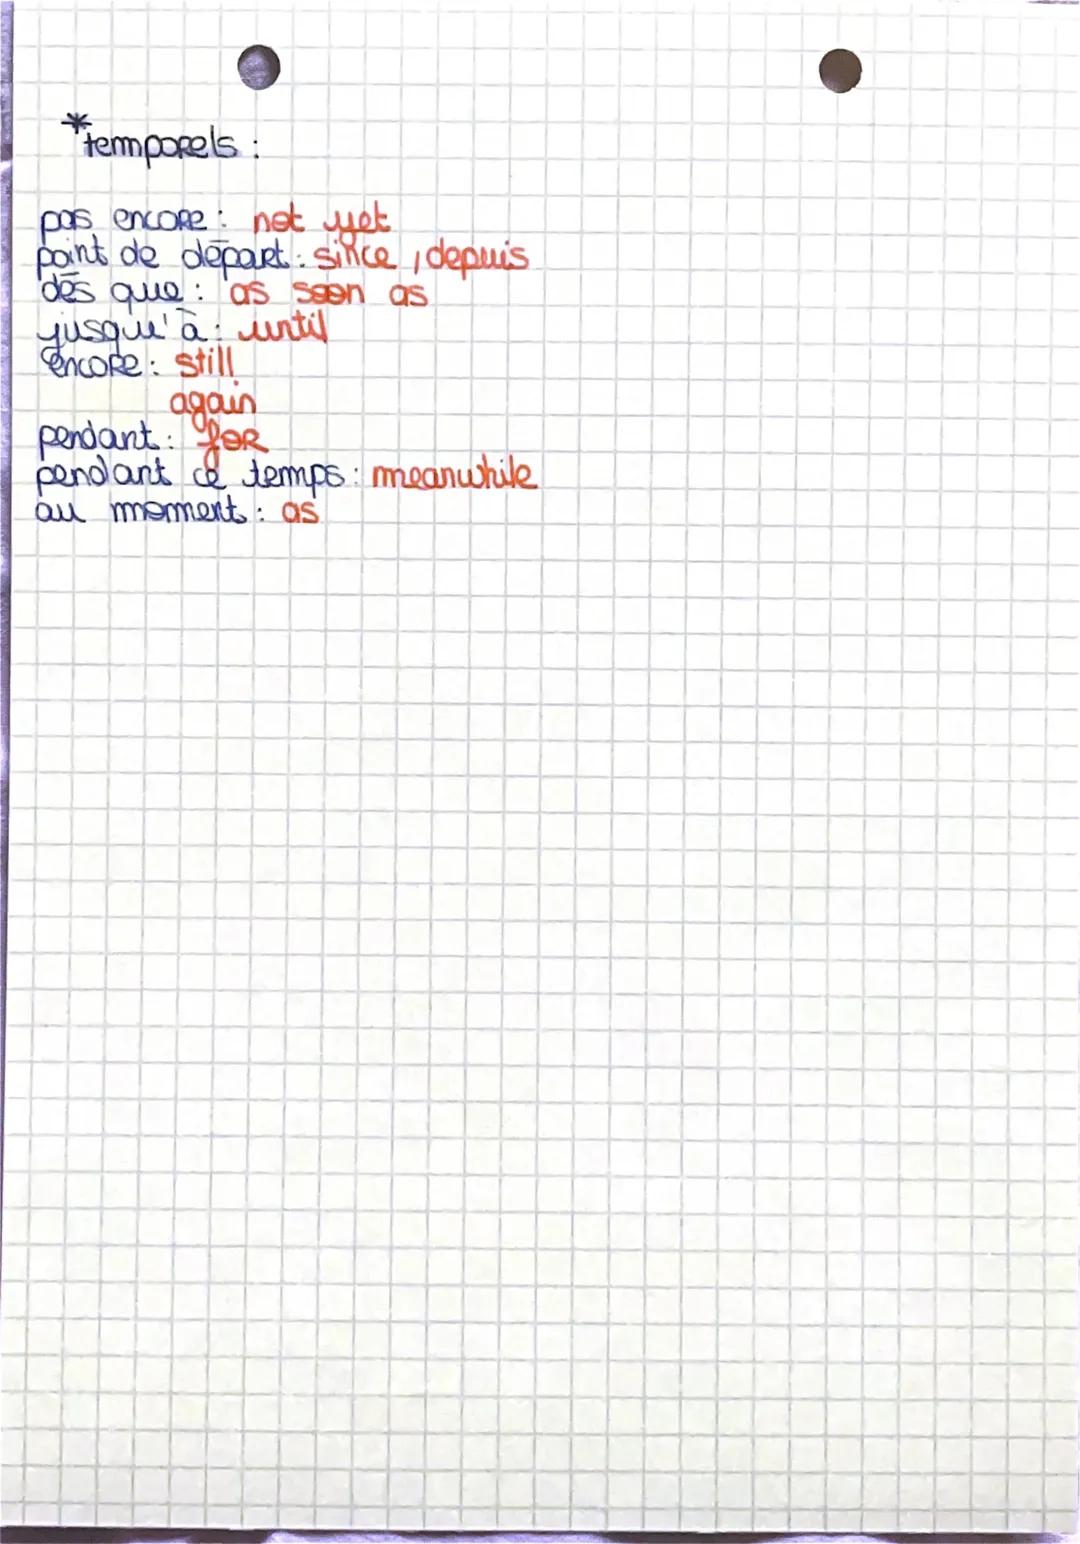 *temporels :
pas encore : not yet
point de départ : since, depuis
dès que : as soon as
jusqu'à : until
encore : still
again
pendant : for
pendant ce temps : meanwhile
au moment : as